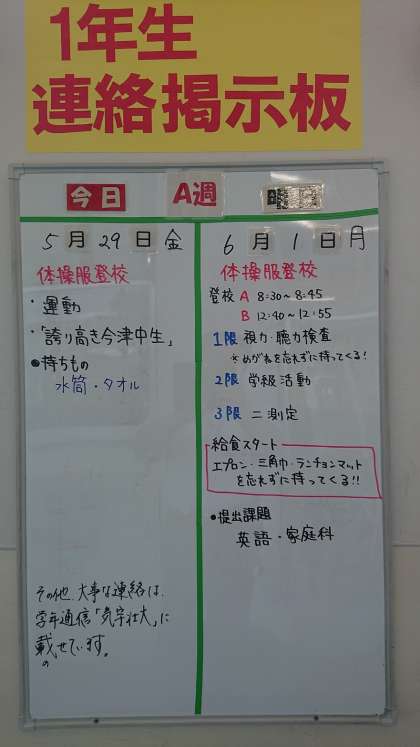 1年生
連絡掲示板
今日
A週
5月29日金
体操服登校
・運動
・「誇り高き今津中生」
●持ちもの
水筒・タオル
その他、大事な連絡は、
学年通信「気宇壮大」に
載せています。
6月1日月
体操服登校
登校 A 8:30~8:45
B 12:40~12:55
1限 視力・聴力検査
※めがねを忘れずに持ってくる!
2限 学級活動
3限 二測定
給食スタート
エプロン・三角巾・ランチョンマット
を忘れずに持ってくる!!
●提出課題
英語・家庭科